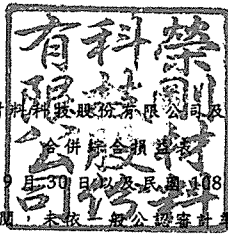 榮剛材料
科技股份
有限公司
料科技股份有限公司及
合併綜合損益表
9月30日以及民國108
，未依一般公認審計